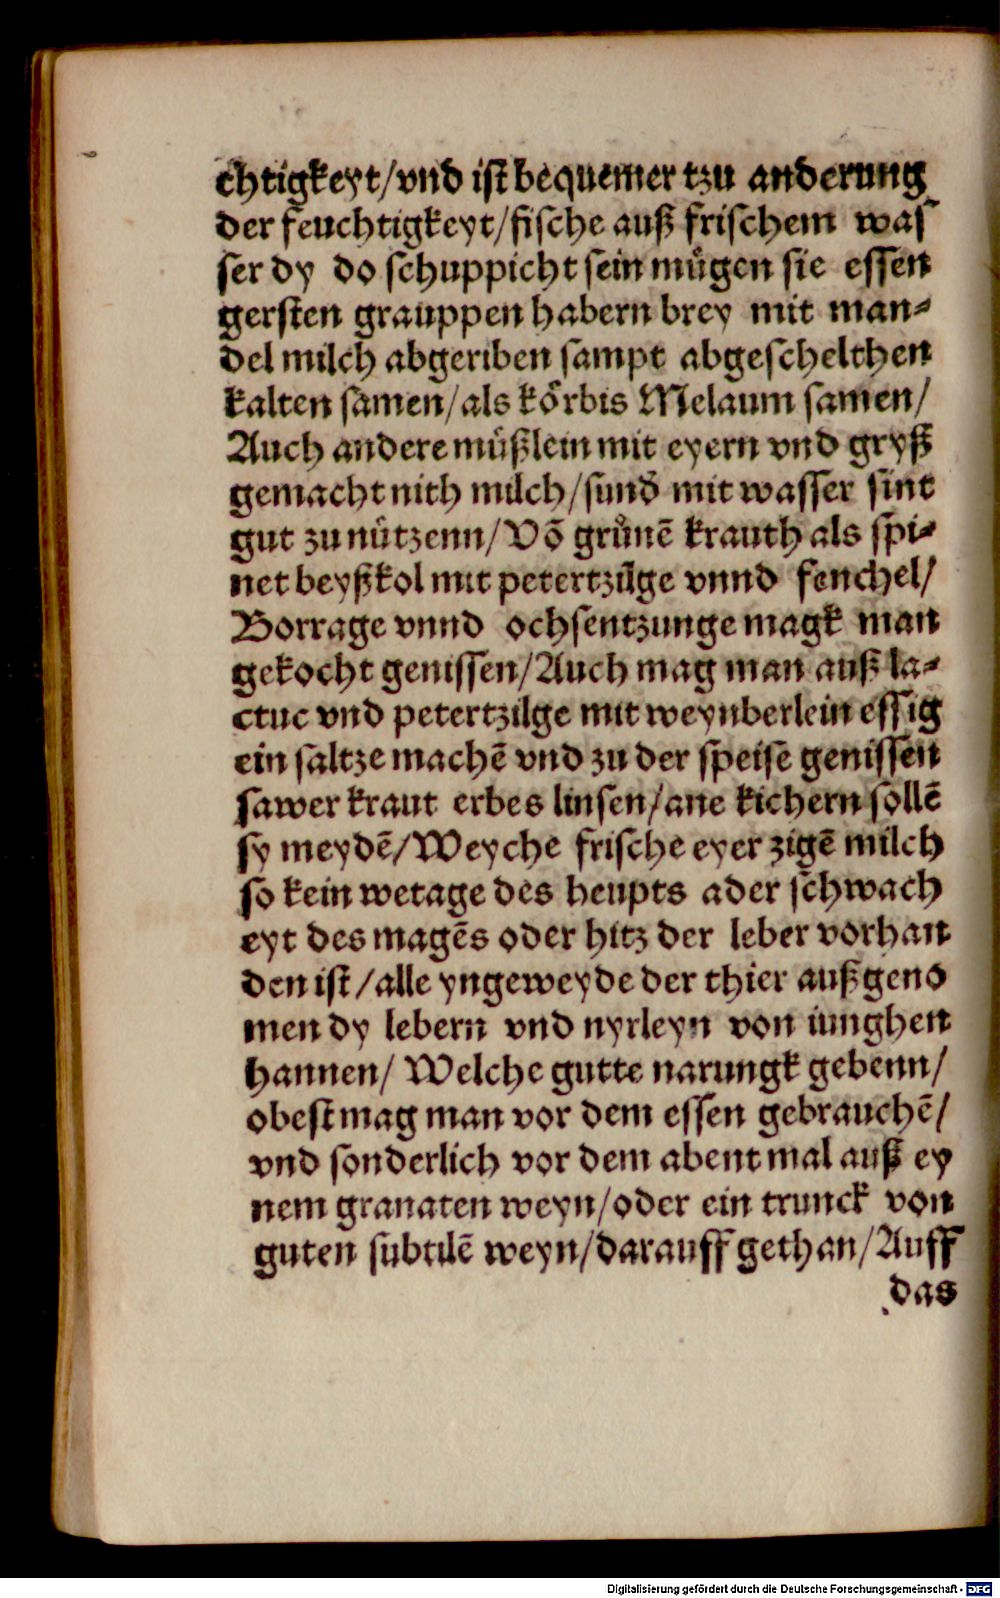 chtigkeyt/vnd ist bequemer tzu anderung
der feuchtigkeyt/fische auß frischem was
ser dy do schuppicht sein mügen sie essen
gersten grauppen habern brey mit man-
del milch abgeriben sampt abgeschelthen
kalten samen/als körbis Melaum samen/
Auch andere müßlein mit eyern vnd gryß
gemacht nith milch/sund̃ mit wasser sint
gut zu nützenn/Võ grůnẽ krauth als spi-
net beyßkol mit petertzilge vnnd fenchel/
Borrage vnnd ochsentzunge magk man
gekocht genissen/Auch mag man auß la-
ctuc vnd petertzilge mit weynberlein essig
ein saltze machẽ vnd zu der speise genissen
sawer kraut erbes linsen/ane kichern sollẽ
sy meydẽ/Weyche frische eyer zigẽ milch
so kein wetage des heupts ader schwach
eyt des magẽs oder hitz der leber vorhan
den ist/alle yngeweyde der thier außgeno
men dy lebern vnd nyrleyn von iunghen
hannen/ Welche gutte narungk gebenn/
obest mag man vor dem essen gebrauchẽ/
vnd sonderlich vor dem abent mal auß ey
nem granaten weyn/oder ein trunck von
guten subtilẽ weyn/darauff gethan/Auff
das
Digitalisierung gefördert durch die Deutsche Forschungsgemeinschaft - DFG